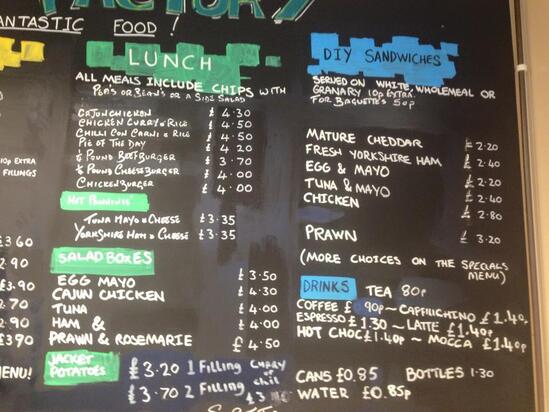 FACTORY
FANTASTIC FOOD!
LUNCH
ALL MEALS INCLUDE CHIPS WITH
PEAS OR BEANS OR A SIDE SALAD
CAJUN CHICKEN £ 4.30
CHICKEN CURRY & RICE £ 4.50
CHILLI CON CARNI & RICE £ 4.50
PIE OF THE DAY £ 4.20
POUND BEEFBURGER £ 3.70
POUND CHEESEBURGER £ 4.00
CHICKENBURGER £ 4.00
HOT PANINNIS
TUNA MAYO & CHEESE £3.35
YORKSHIRE HAM & CHEESE £3.35
SALAD BOXES
EGG MAYO £ 3.50
CAJUN CHICKEN £ 4.30
TUNA £ 4.00
HAM & £ 4.00
PRAWN & ROSEMARIE £ 4.50
JACKET POTATOES
£ 3.20 1 FILLING
£ 3.70 2 FILLING
10p EXTRA
FILLINGS
£3.60
2.90
3.90
2.70
2.90
£3.90
MENU!
DIY SANDWICHES
SERVED ON WHITE, WHOLEMEAL OR
GRANARY 10p EXTRA
FOR BAGUETTE'S 50p
MATURE CHEDDAR £ 2.20
FRESH YORKSHIRE HAM £ 2.40
EGG & MAYO £ 2.20
TUNA & MAYO £ 2.40
CHICKEN £ 2.80
PRAWN £ 3.20
(MORE CHOICES ON THE SPECIALS
MENU)
DRINKS TEA 80p
COFFEE £ 90p ~ CAPPUCHINO £1.40p
ESPRESSO £1.30 ~ LATTE £1.40p
HOT CHOC £1.40p ~ MOCCA £1.40p
CANS £0.85 BOTTLES 1.30
WATER £0.85p